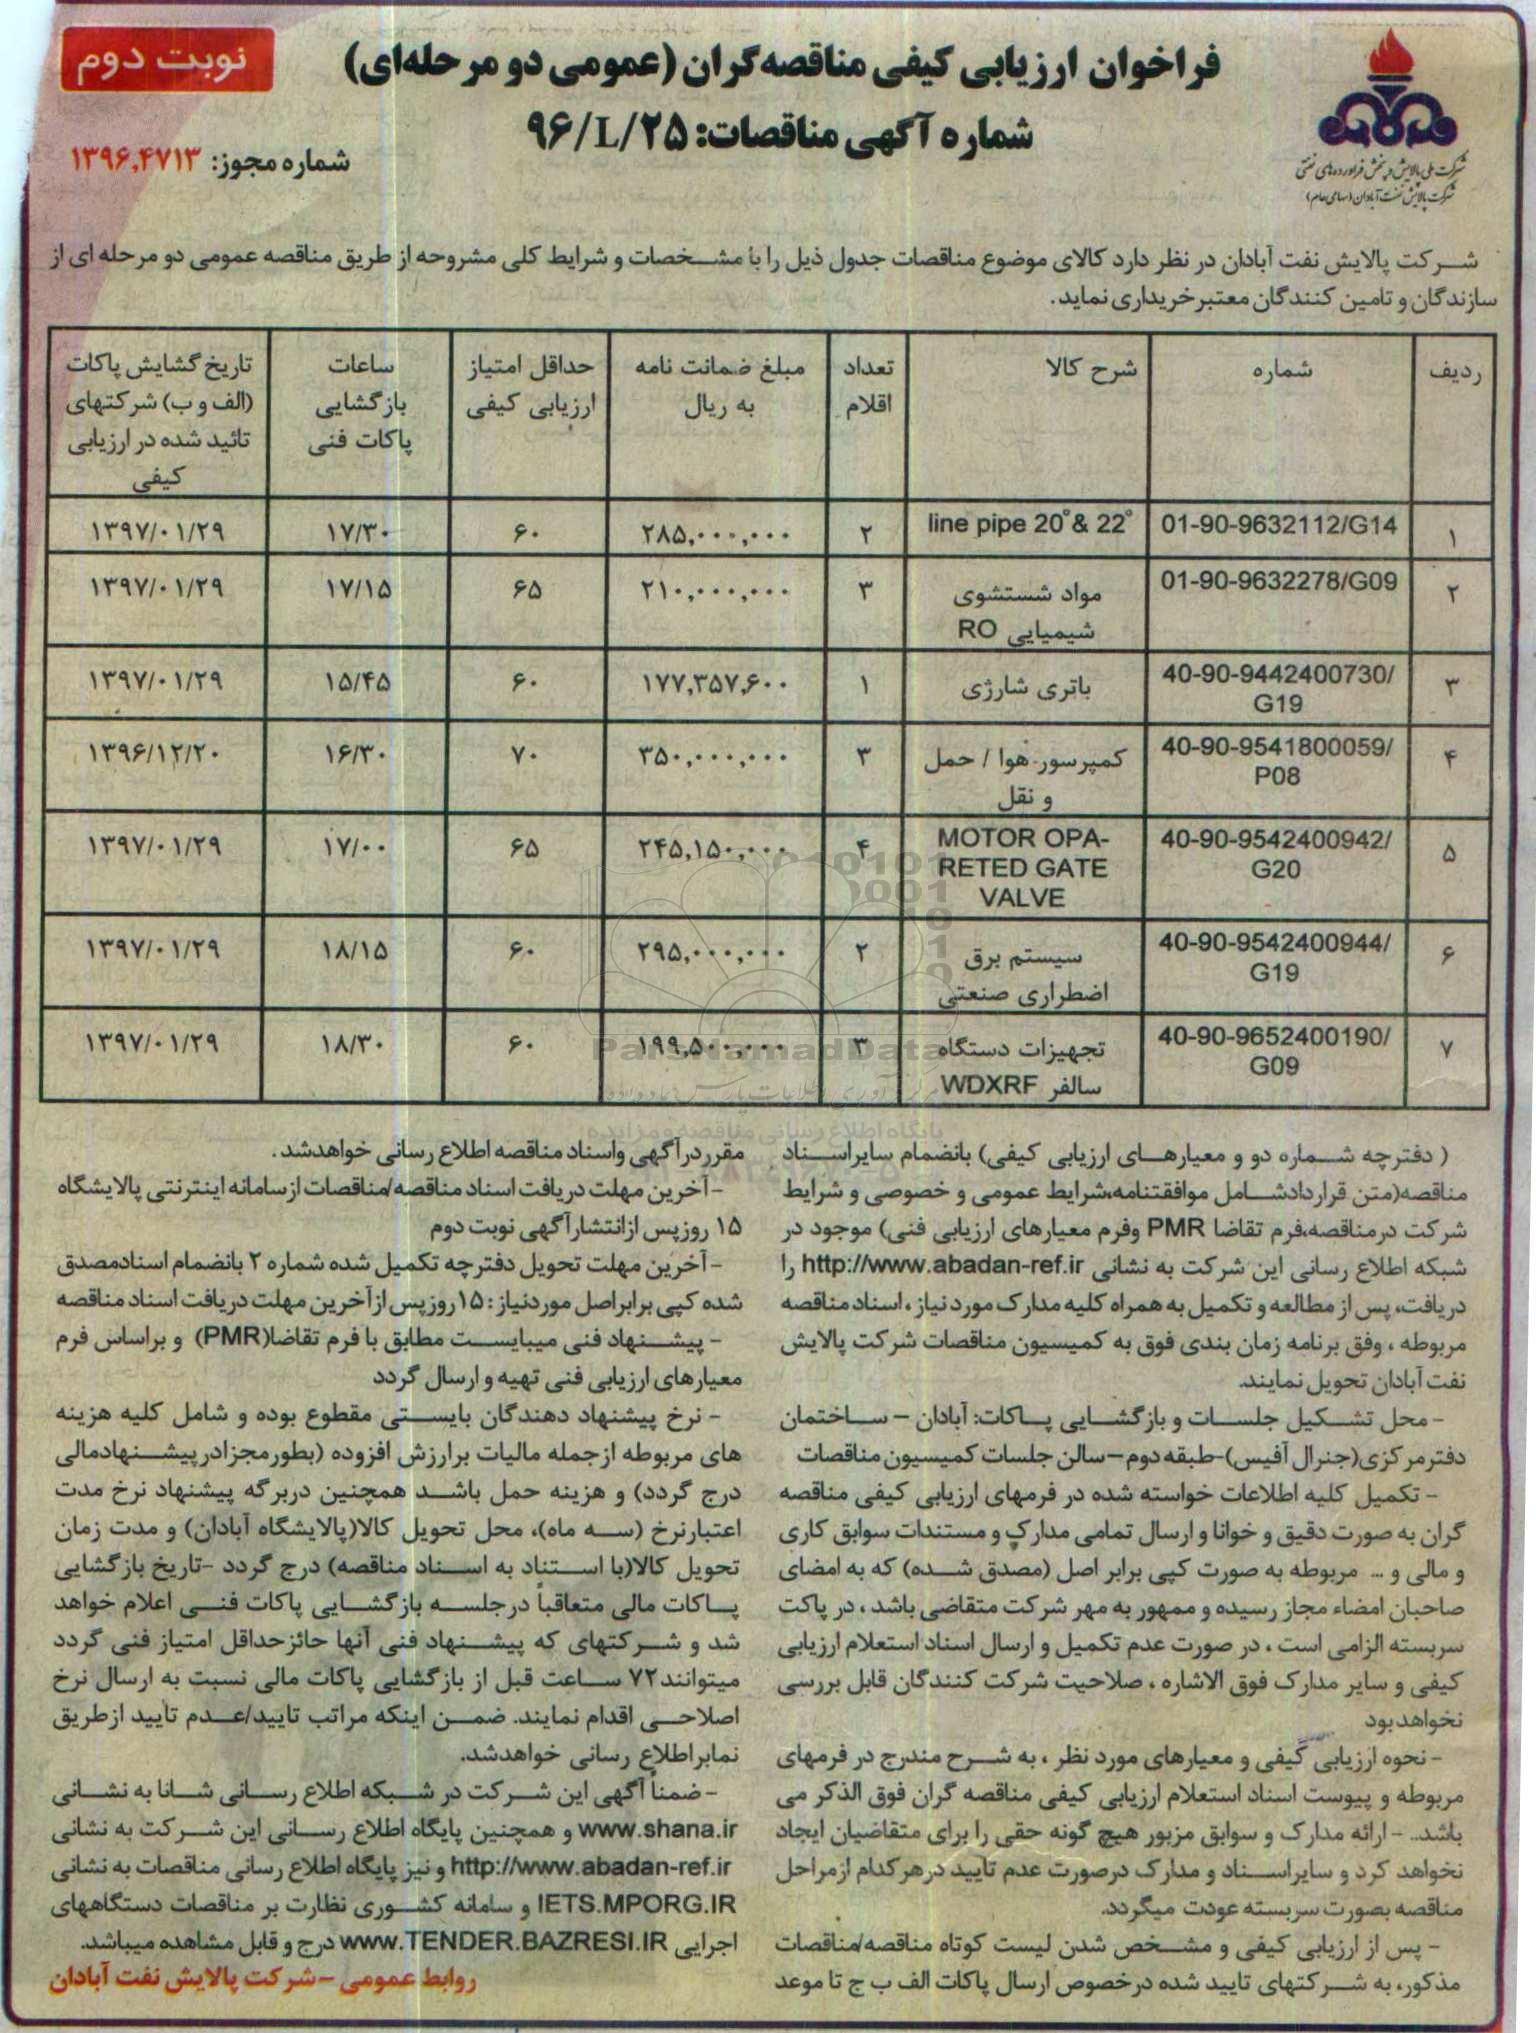 نوبت دوم
فراخوان ارزیابی کیفی مناقصه‌گران (عمومی دو مرحله‌ای)
شماره آگهی مناقصات: ۹۶/L/۲۵
شماره مجوز: ۱۳۹۶,۴۷۱۳
شرکت ملی پالایش و پخش فراورده‌های نفتی
شرکت پالایش نفت آبادان (سهامی عام)
شرکت پالایش نفت آبادان در نظر دارد کالای موضوع مناقصات جدول ذیل را با مشخصات و شرایط کلی مشروحه از طریق مناقصه عمومی دو مرحله ای از
سازندگان و تامین کنندگان معتبر خریداری نماید.
ردیف | شماره | شرح کالا | تعداد اقلام | مبلغ ضمانت نامه به ریال | حداقل امتیاز ارزیابی کیفی | ساعات بازگشایی پاکات فنی | تاریخ گشایش پاکات (الف و ب) شرکتهای تائید شده در ارزیابی کیفی
۱ | 01-90-9632112/G14 | line pipe 20°& 22° | ۲ | ۲۸۵,۰۰۰,۰۰۰ | ۶۰ | ۱۷/۳۰ | ۱۳۹۷/۰۱/۲۹
۲ | 01-90-9632278/G09 | مواد شستشوی شیمیایی RO | ۳ | ۲۱۰,۰۰۰,۰۰۰ | ۶۵ | ۱۷/۱۵ | ۱۳۹۷/۰۱/۲۹
۳ | 40-90-9442400730/G19 | باتری شارژی | ۱ | ۱۷۷,۳۵۷,۶۰۰ | ۶۰ | ۱۵/۴۵ | ۱۳۹۷/۰۱/۲۹
۴ | 40-90-9541800059/P08 | کمپرسور هوا / حمل و نقل | ۳ | ۳۵۰,۰۰۰,۰۰۰ | ۷۰ | ۱۶/۳۰ | ۱۳۹۶/۱۲/۲۰
۵ | 40-90-9542400942/G20 | MOTOR OPA-RETED GATE VALVE | ۴ | ۲۴۵,۱۵۰,۰۰۰ | ۶۵ | ۱۷/۰۰ | ۱۳۹۷/۰۱/۲۹
۶ | 40-90-9542400944/G19 | سیستم برق اضطراری صنعتی | ۲ | ۲۹۵,۰۰۰,۰۰۰ | ۶۰ | ۱۸/۱۵ | ۱۳۹۷/۰۱/۲۹
۷ | 40-90-9652400190/G09 | تجهیزات دستگاه سالفر WDXRF | ۳ | ۱۹۹,۵۰۰,۰۰۰ | ۶۰ | ۱۸/۳۰ | ۱۳۹۷/۰۱/۲۹
پایگاه اطلاع رسانی مناقصه و مزایده
( دفترچه شماره دو و معیارهای ارزیابی کیفی) بانضمام سایر اسناد
مناقصه(متن قراردادشامل موافقتنامه،شرایط عمومی و خصوصی و شرایط
شرکت درمناقصه،فرم تقاضا PMR وفرم معیارهای ارزیابی فنی) موجود در
شبکه اطلاع رسانی این شرکت به نشانی http://www.abadan-ref.ir را
دریافت، پس از مطالعه و تکمیل به همراه کلیه مدارک مورد نیاز ، اسناد مناقصه
مربوطه ، وفق برنامه زمان بندی فوق به کمیسیون مناقصات شرکت پالایش
نفت آبادان تحویل نمایند.
- محل تشکیل جلسات و بازگشایی پاکات: آبادان – ساختمان
دفترمرکزی(جنرال آفیس)-طبقه دوم–سالن جلسات کمیسیون مناقصات
- تکمیل کلیه اطلاعات خواسته شده در فرمهای ارزیابی کیفی مناقصه
گران به صورت دقیق و خوانا و ارسال تمامی مدارک و مستندات سوابق کاری
و مالی و ... مربوطه به صورت کپی برابر اصل (مصدق شده) که به امضای
صاحبان امضاء مجاز رسیده و ممهور به مهر شرکت متقاضی باشد ، در پاکت
سربسته الزامی است ، در صورت عدم تکمیل و ارسال اسناد استعلام ارزیابی
کیفی و سایر مدارک فوق الاشاره ، صلاحیت شرکت کنندگان قابل بررسی
نخواهد بود
- نحوه ارزیابی کیفی و معیارهای مورد نظر ، به شرح مندرج در فرمهای
مربوطه و پیوست اسناد استعلام ارزیابی کیفی مناقصه گران فوق الذکر می
باشد.. - ارائه مدارک و سوابق مزبور هیچ گونه حقی را برای متقاضیان ایجاد
نخواهد کرد و سایراسناد و مدارک درصورت عدم تایید درهرکدام ازمراحل
مناقصه بصورت سربسته عودت میگردد.
- پس از ارزیابی کیفی و مشخص شدن لیست کوتاه مناقصه/مناقصات
مذکور، به شرکتهای تایید شده درخصوص ارسال پاکات الف ب ج تا موعد
مقرردرآگهی واسناد مناقصه اطلاع رسانی خواهدشد .
-آخرین مهلت دریافت اسناد مناقصه/مناقصات ازسامانه اینترنتی پالایشگاه
۱۵ روزپس ازانتشارآگهی نوبت دوم
-آخرین مهلت تحویل دفترچه تکمیل شده شماره ۲ بانضمام اسنادمصدق
شده کپی برابراصل موردنیاز : ۱۵روزپس ازآخرین مهلت دریافت اسناد مناقصه
- پیشنهاد فنی میبایست مطابق با فرم تقاضا(PMR) و براساس فرم
معیارهای ارزیابی فنی تهیه و ارسال گردد
- نرخ پیشنهاد دهندگان بایستی مقطوع بوده و شامل کلیه هزینه
های مربوطه ازجمله مالیات برارزش افزوده (بطورمجزادرپیشنهادمالی
درج گردد) و هزینه حمل باشد همچنین دربرگه پیشنهاد نرخ مدت
اعتبارنرخ (سه ماه)، محل تحویل کالا(پالایشگاه آبادان) و مدت زمان
تحویل کالا(با استناد به اسناد مناقصه) درج گردد -تاریخ بازگشایی
پاکات مالی متعاقباً درجلسه بازگشایی پاکات فنی اعلام خواهد
شد و شرکتهای که پیشنهاد فنی آنها حائزحداقل امتیاز فنی گردد
میتوانند۷۲ ساعت قبل از بازگشایی پاکات مالی نسبت به ارسال نرخ
اصلاحی اقدام نمایند. ضمن اینکه مراتب تایید/عدم تایید ازطریق
نمابراطلاع رسانی خواهدشد.
-ضمناً آگهی این شرکت در شبکه اطلاع رسانی شانا به نشانی
www.shana.ir و همچنین پایگاه اطلاع رسانی این شرکت به نشانی
http://www.abadan-ref.ir و نیز پایگاه اطلاع رسانی مناقصات به نشانی
IETS.MPORG.IR و سامانه کشوری نظارت بر مناقصات دستگاههای
اجرایی www.TENDER.BAZRESI.IR درج و قابل مشاهده میباشد.
روابط عمومی – شرکت پالایش نفت آبادان